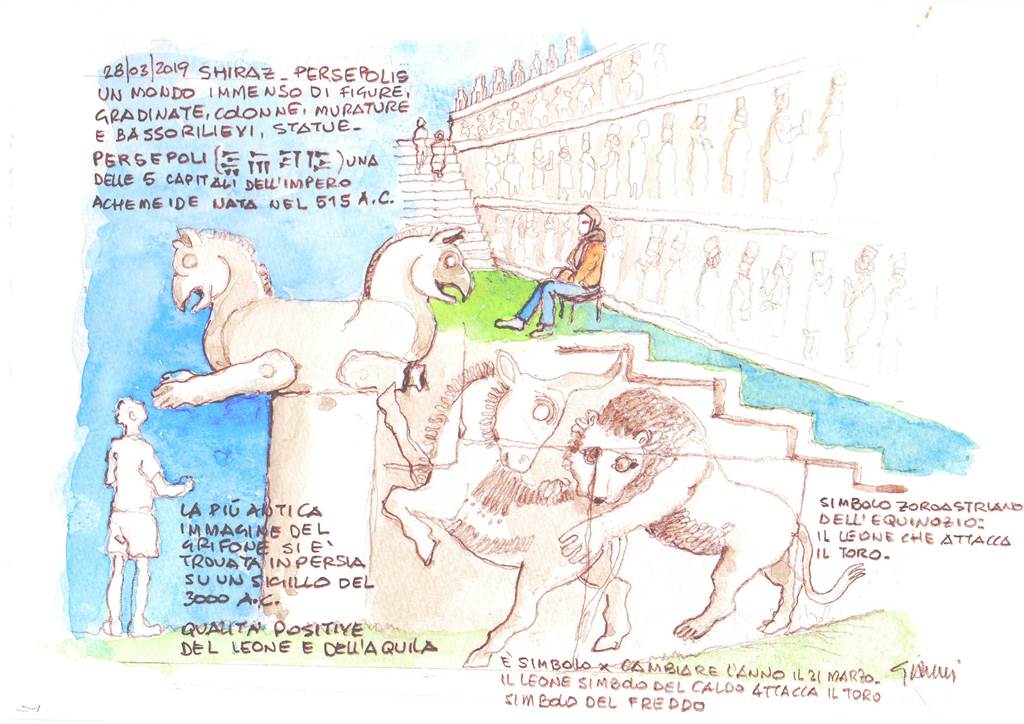 28/03/2019 SHIRAZ - PERSEPOLIS
UN MONDO IMMENSO DI FIGURE,
GRADINATE, COLONNE, MURATURE
E BASSORILIEVI, STATUE-
PERSEPOLI ( ) UNA
DELLE 5 CAPITALI DELL'IMPERO
ACHEMEIDE NATA NEL 515 A.C.
LA PIÚ ANTICA
IMMAGINE DEL
GRIFONE SI E'
TROVATA IN PERSIA
SU UN SIGILLO DEL
3000 A.C.
QUALITÀ POSITIVE
DEL LEONE E DELL'AQUILA
SIMBOLO ZOROASTRIANO
DELL'EQUINOZIO:
IL LEONE CHE ATTACCA
IL TORO.
È SIMBOLO X CAMBIARE L'ANNO IL 21 MARZO.
IL LEONE SIMBOLO DEL CALDO ATTACCA IL TORO
SIMBOLO DEL FREDDO